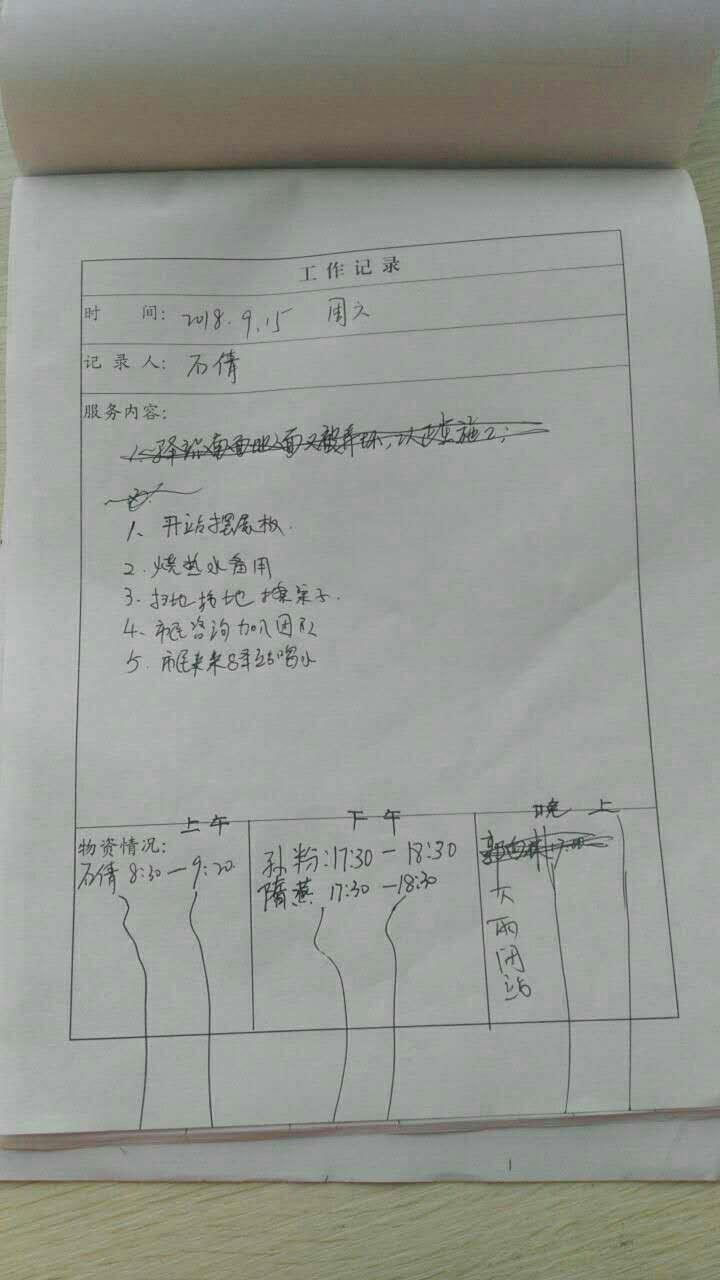 工作记录
时 间: 2018.9.15 周六
记录人: 石倩
服务内容:
1、开站摆展板.
2.烧热水备用
3.扫地拖地擦桌子.
4、市民咨询加入团队
5.市民来驿站喝水
上午 下午 晚上
物资情况:
石倩 8:30—9:20
孙粉:17:30—18:30
隋燕 17:30—18:30
大雨闭站